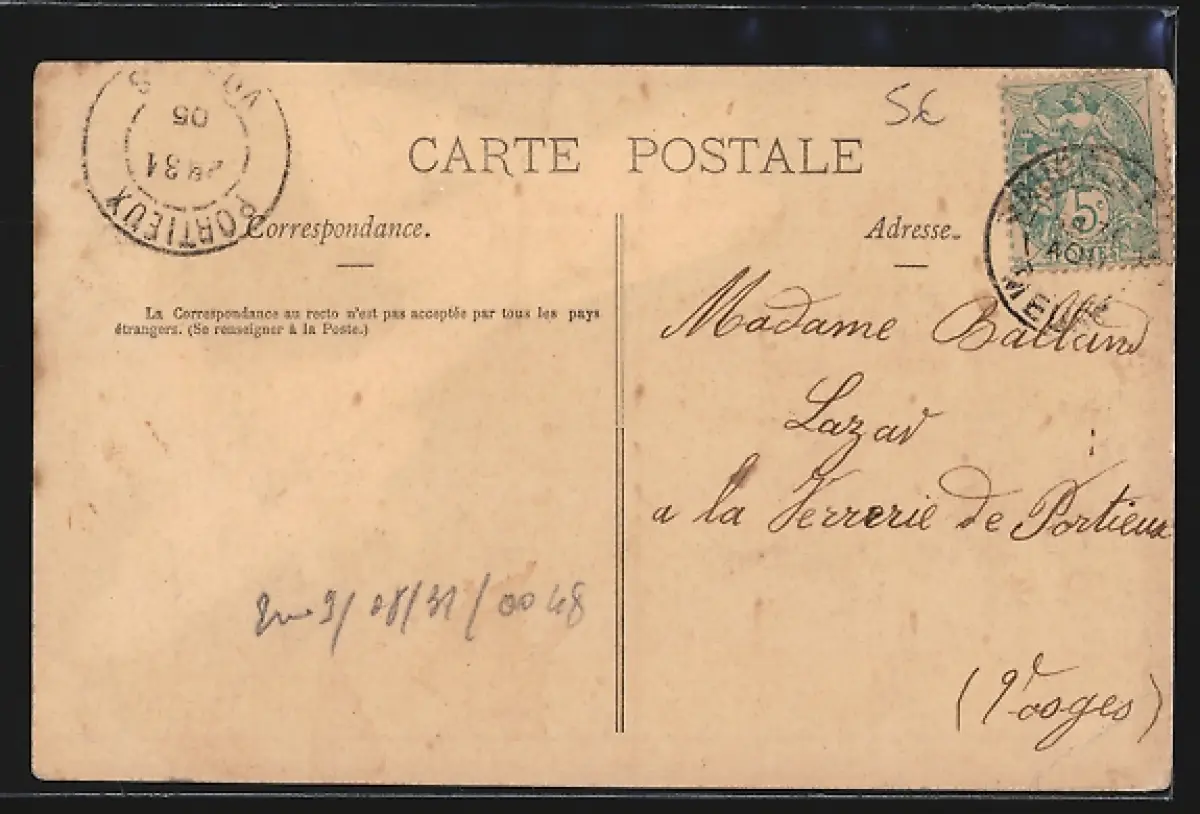 5€
CARTE POSTALE
PORTIEUX
31
05
Correspondance.
Adresse.
La Correspondance au recto n'est pas acceptée par tous les pays
étrangers. (Se renseigner à la Poste.)
5c
AOU
Madame Balland
Lazar
a la Verrerie de Portieux
(Vosges)